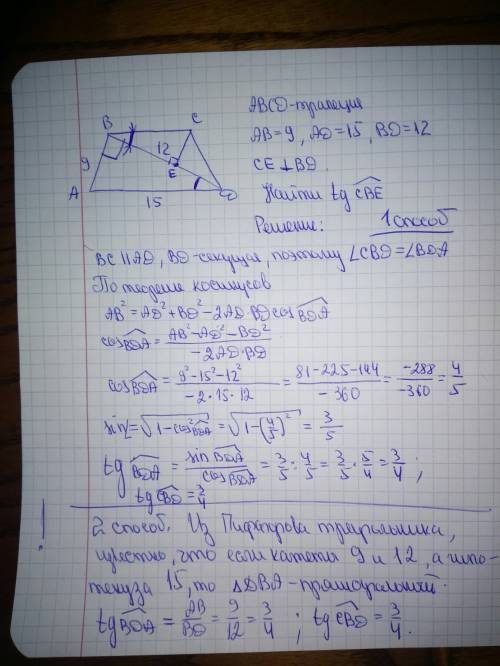 ABCD-трапеция
AB=9, AD=15, BD=12
CE⊥BD.
Найти tg CBE
Решение: 1 способ
B C
9 12
E
A D
15
BC || AD, BD-секущая, поэтому ∠CBD=∠BDA
По теореме косинусов
AB²=AD²+BD²-2AD·BD cos BDA
cos BDA = (AB²-AD²-BD²)/(-2AD·BD)
cos BDA = (9²-15²-12²)/(-2·15·12) = (81-225-144)/(-360) = (-288)/(-360) = 4/5
sin = √(1-cos²BDA) = √(1-(4/5)²) = 3/5
tg BDA = sin BDA/cos BDA = 3/5 : 4/5 = 3/5 · 5/4 = 3/4;
tg CBD = 3/4
! 2 способ. Из Пифагорова треугольника,
известно, что если катеты 9 и 12, а гипо-
тенуза 15, то △DBA-прямоугольный.
tg BDA = AB/BD = 9/12 = 3/4; tg CBD = 3/4.